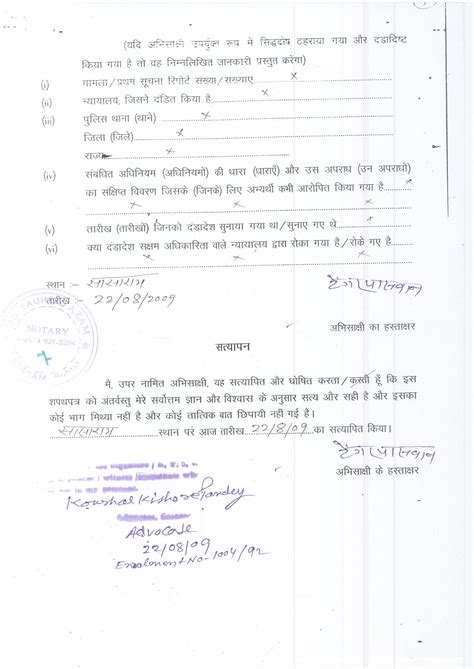 (यदि अभिसाक्षी उपर्युक्त रूप में सिद्धदोष ठहराया गया और दंडादिष्ट
किया गया है तो वह निम्नलिखित जानकारी प्रस्तुत करेगा)
(i) मामला/प्रथम सूचना रिपोर्ट संख्या/संख्याएं x
(ii) न्यायालय, जिसने दंडित किया है x
(iii) पुलिस थाना (थाने) x
जिला (जिले) x
राज्य x
(iv) संबंधित अधिनियम (अधिनियमों) की धारा (धाराएँ) और उस अपराध (उन अपराधों)
का संक्षिप्त विवरण जिसके (जिनके) लिए अभ्यर्थी कभी आरोपित किया गया है x
(v) तारीख (तारीखों) जिनको दंडादेश सुनाया गया था/सुनाए गए थे x
(vi) क्या दंडादेश सक्षम अधिकारिता वाले न्यायालय द्वारा रोका गया है/रोके गए है
x x x
स्थान :- सासाराम
तारीख :- 22/08/2009
NOTARY
अभिसाक्षी का हस्ताक्षर
सत्यापन
मै, उपर नामित अभिसाक्षी, यह सत्यापित और घोषित करता/करती हूँ कि इस
शपथपत्र को अंतर्वस्तु मेरे सर्वोत्तम ज्ञान और विश्वास के अनुसार सत्य और सही है और इसका
कोई भाग मिथ्या नहीं है और कोई तात्विक बात छिपायी नही गई है।
सासाराम स्थान पर आज तारीख 22/8/09 का सत्यापित किया।
अभिसाक्षी के हस्ताक्षर
Koushal Kishore Pandey
Advocate
22/08/09
Enrolment No-1004/92